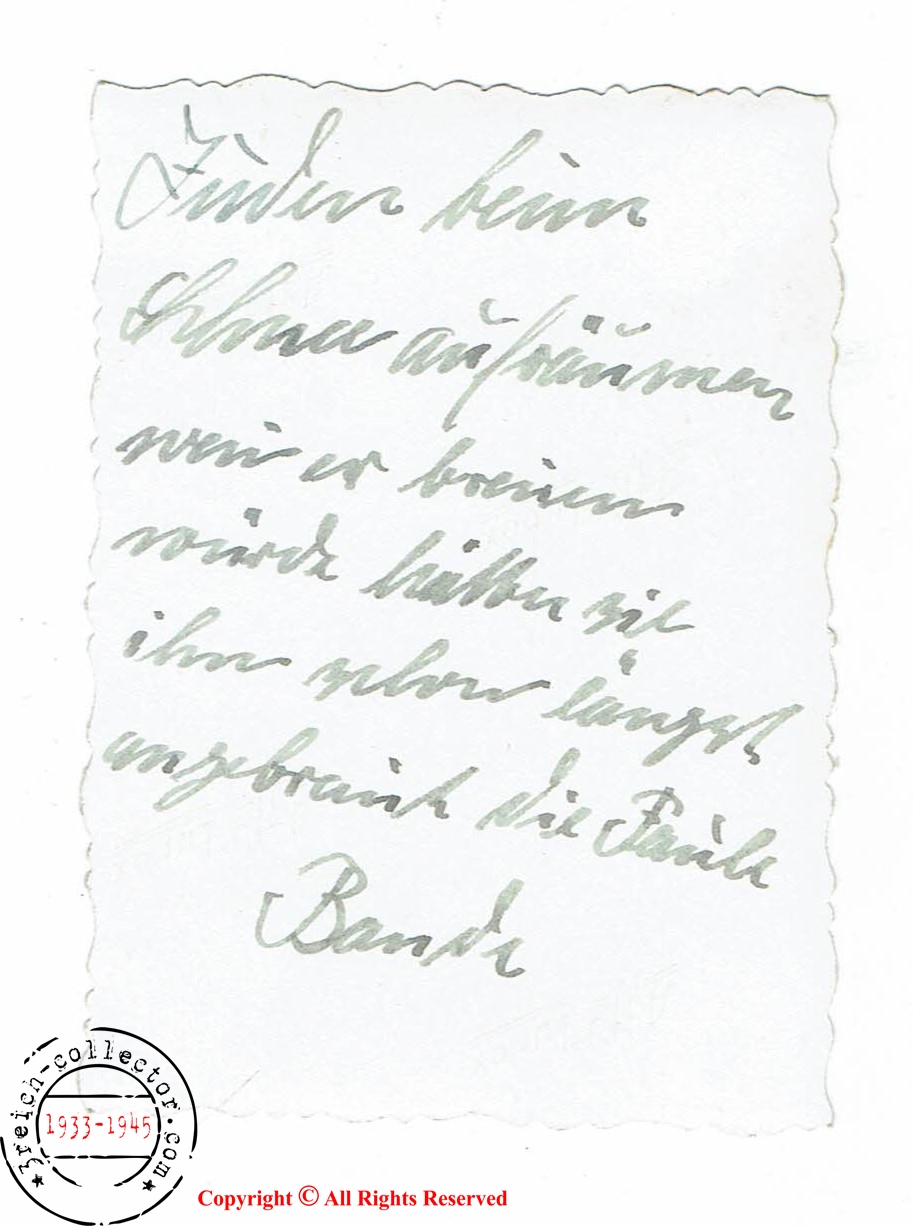 Juden beim
Schnee aufräumen
wen er brenen
würde hätten sie
ihn schon längst
angebrant die Faule
Bande
3reich-collector.com
1933-1945
Copyright © All Rights Reserved